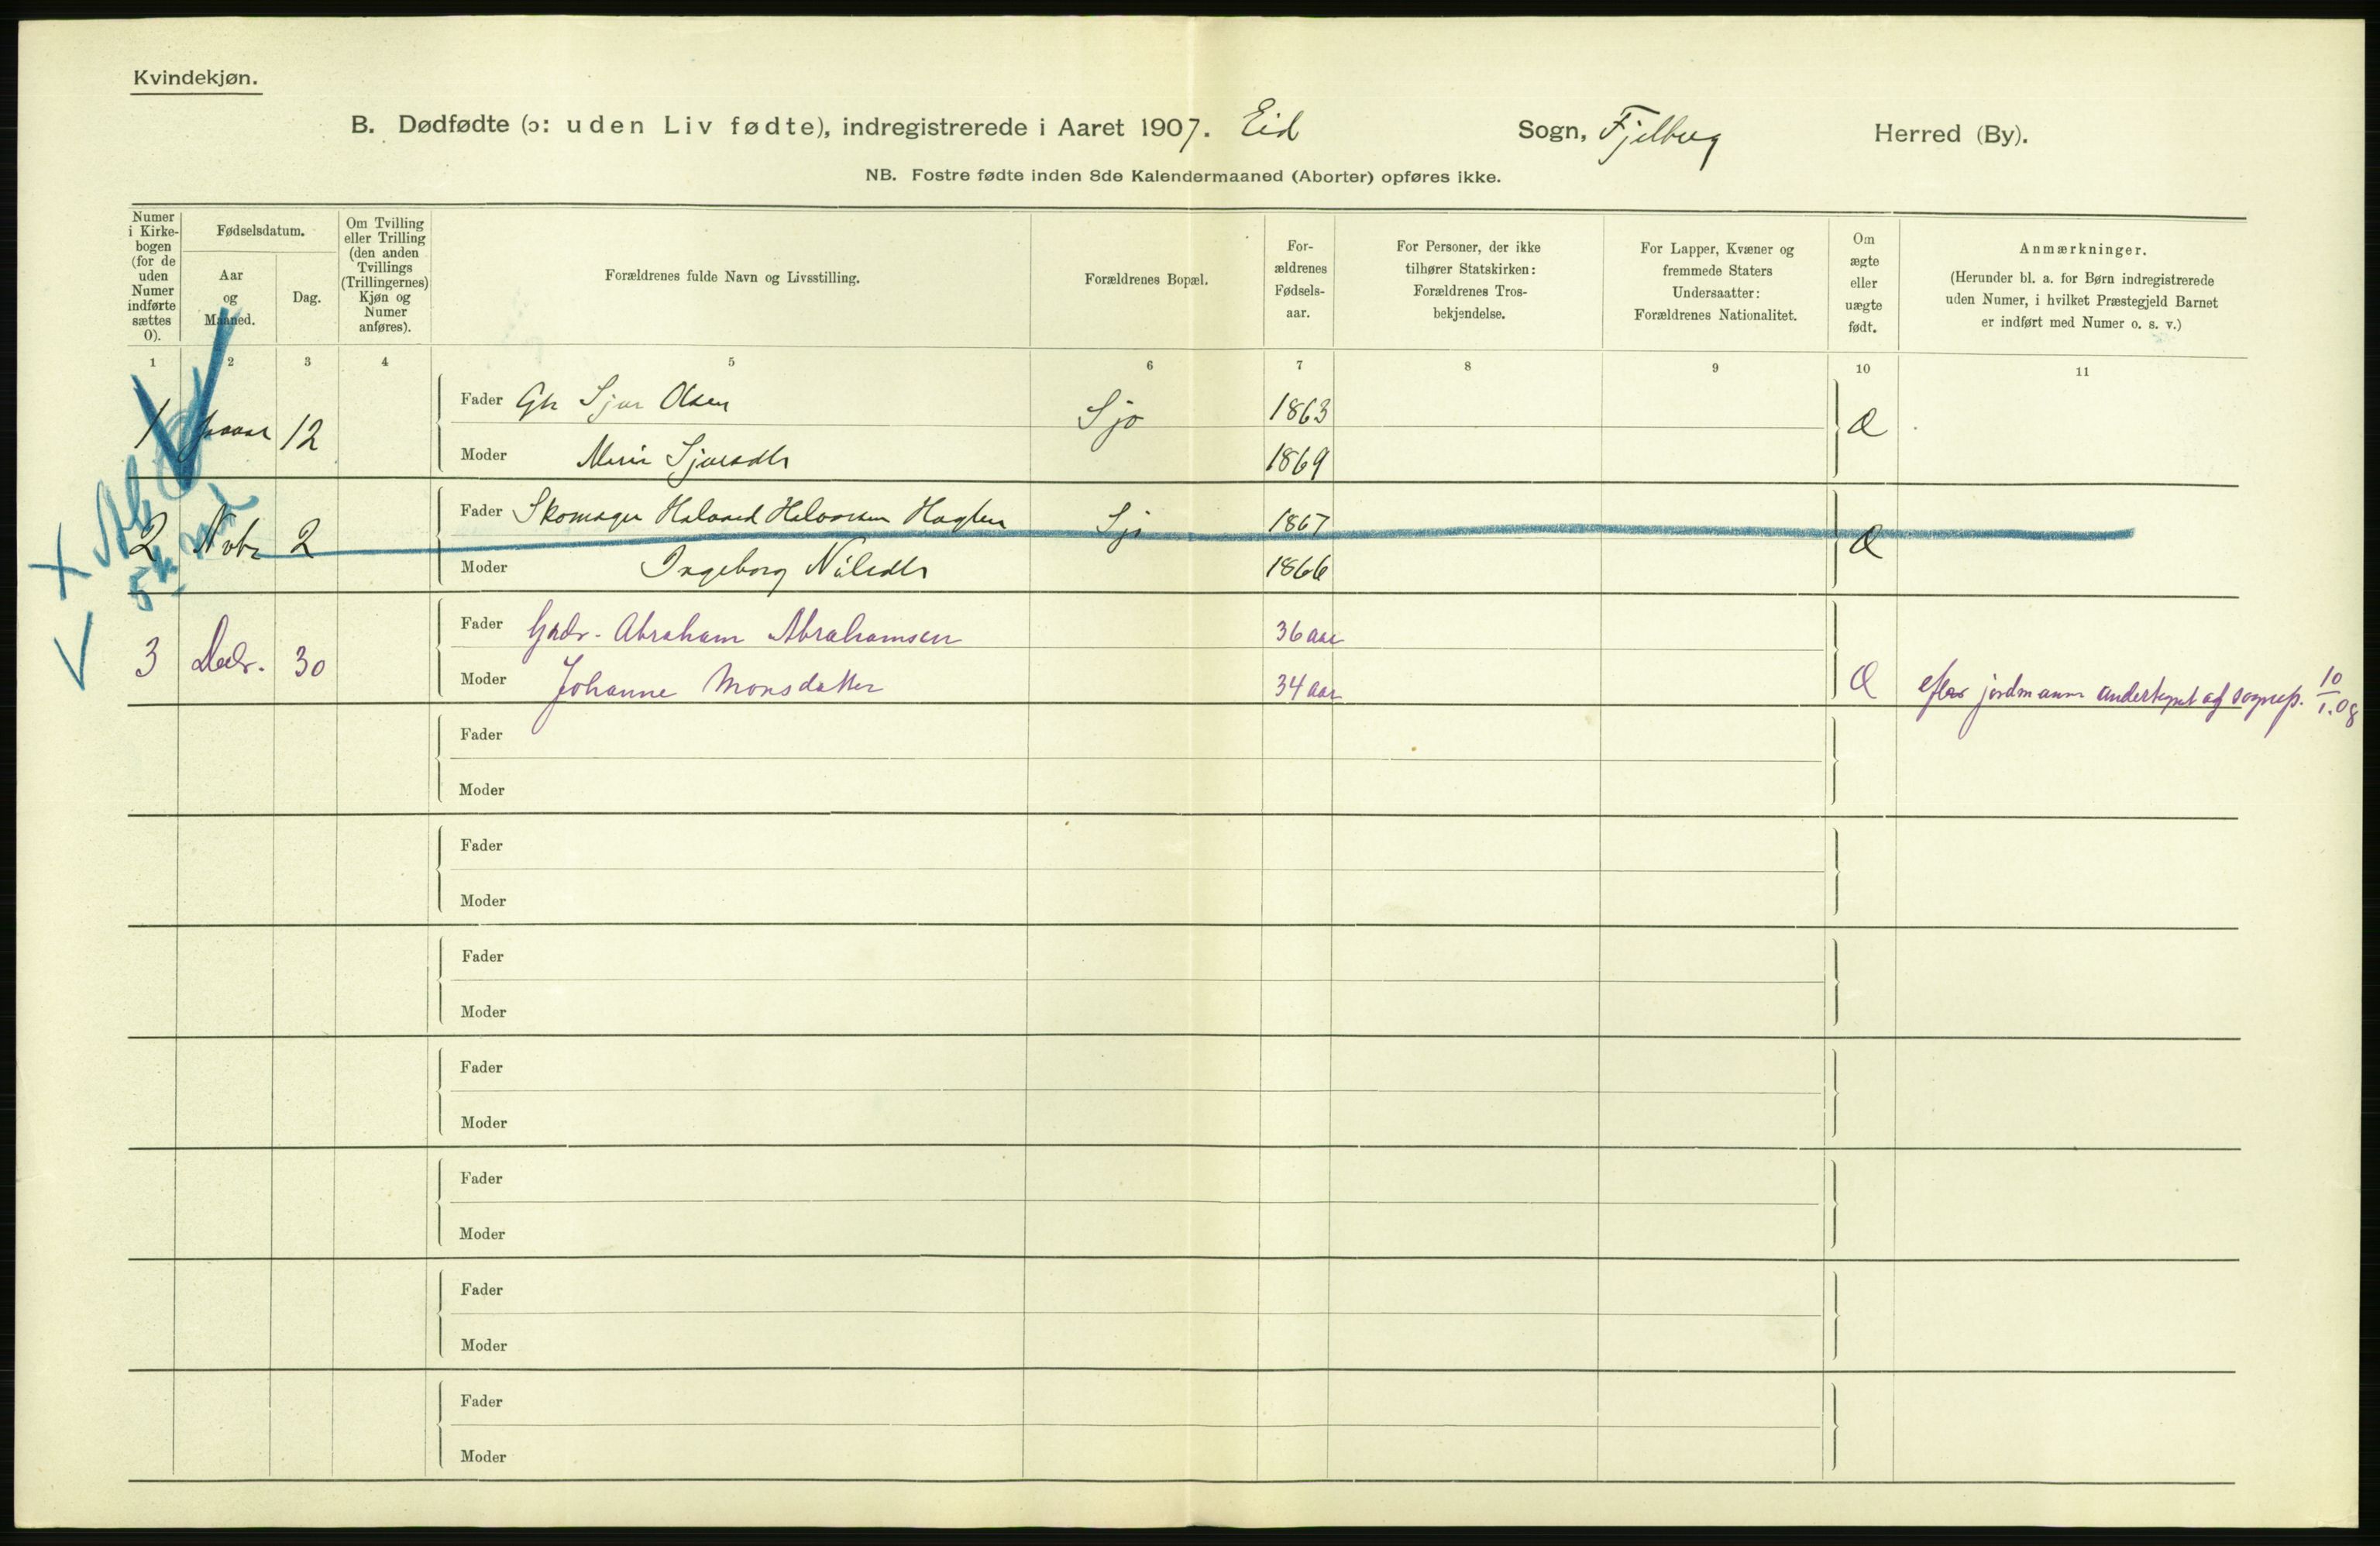 Kvindekjøn.
B. Dødfødte (ɔ: uden Liv fødte), indregistrerede i Aaret 1907. Eid Sogn, Fjelberg Herred (By).
NB. Fostre fødte inden 8de Kalendermaaned (Aborter) opføres ikke.
Numer
i Kirke-
bogen
(for de
uden
Numer
indførte
sættes
0).
Fødselsdatum.
Aar
og
Maaned.
Dag.
Om Tvilling
eller Trilling
(den anden
Tvillings
(Trillingernes)
Kjøn og
Numer
anføres).
Forældrenes fulde Navn og Livsstilling.
Forældrenes Bopæl.
For-
ældrenes
Fødsels-
aar.
For Personer, der ikke
tilhører Statskirken:
Forældrenes Tros-
bekjendelse.
For Lapper, Kvæner og
fremmede Staters
Undersaatter:
Forældrenes Nationalitet.
Om
ægte
eller
uægte
født.
Anmærkninger.
(Herunder bl. a. for Børn indregistrerede
uden Numer, i hvilket Præstegjeld Barnet
er indført med Numer o. s. v.)
1 2 3 4 5 6 7 8 9 10 11
1 12
Fader Gbr Sjur Olsen Sjo 1863
Moder Sjursdtr 1869
2 Novbr 2
Fader Skomager Halvard Halvorsen 1867
Moder Ingeborg Nilsdtr 1866
3 Decbr. 30
Fader Gadr. Abraham Abrahamsen 36 aar
Moder Johanne Monsdatter 34 aar
10/1.08
Fader
Moder
Fader
Moder
Fader
Moder
Fader
Moder
Fader
Moder
Fader
Moder
Fader
Moder